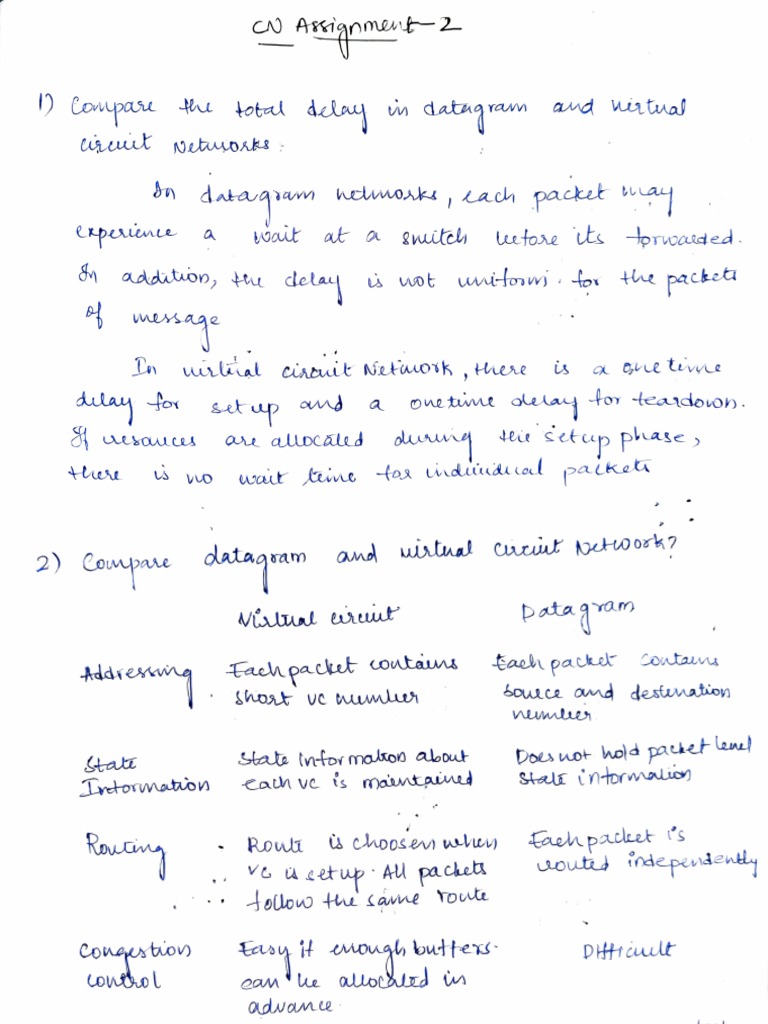 CN Assignment-2
1) Compare the total delay in datagram and virtual
circuit Networks.
In datagram networks, each packet may
experience a wait at a switch before its forwarded.
In addition, the delay is not uniform. for the packets
of message
In virtual circuit Network, there is a one time
delay for set up and a onetime delay for teardown.
If resources are allocated during the setup phase,
there is no wait time for individual packets
2) Compare datagram and virtual circuit Network?
Virtual circuit Datagram
Addressing Each packet contains Each packet contains
short vc number source and destination
number
State State information about Does not hold packet level
Information each vc is maintained state information
Routing Route is choosen when Each packet is
vc is setup. All packets routed independently
follow the same route
Congestion Easy if enough buffers Difficult
control can be allocated in
advance.